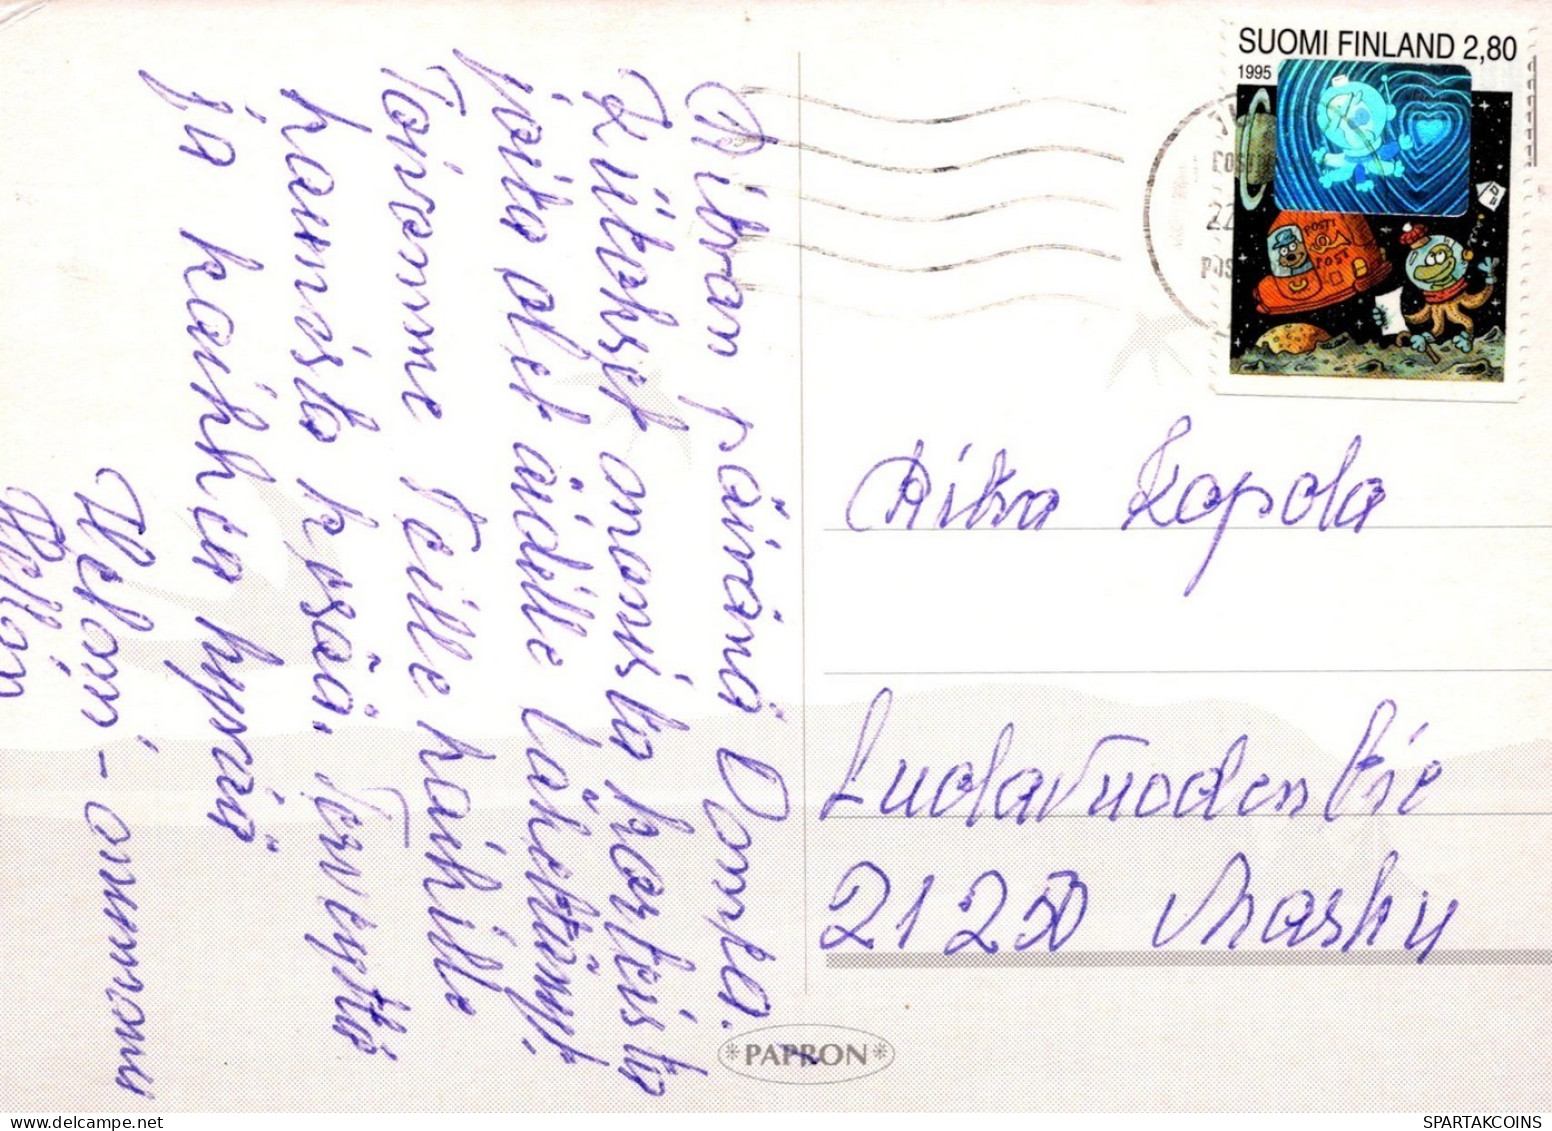 SUOMI FINLAND 2,80
1995
POSTI
POST
22
POS
Ritvan päivänä
Kiitokset onnista kortista
joita olet äidille lähettänyt.
Toivomme Teille kaikille
kaunista kesää. Terveyttä
ja kaikkea hyvää
Helmi-mummu
Ritva Kapola
21250 Masku
*PAPRON*
SPARTAKCOINS